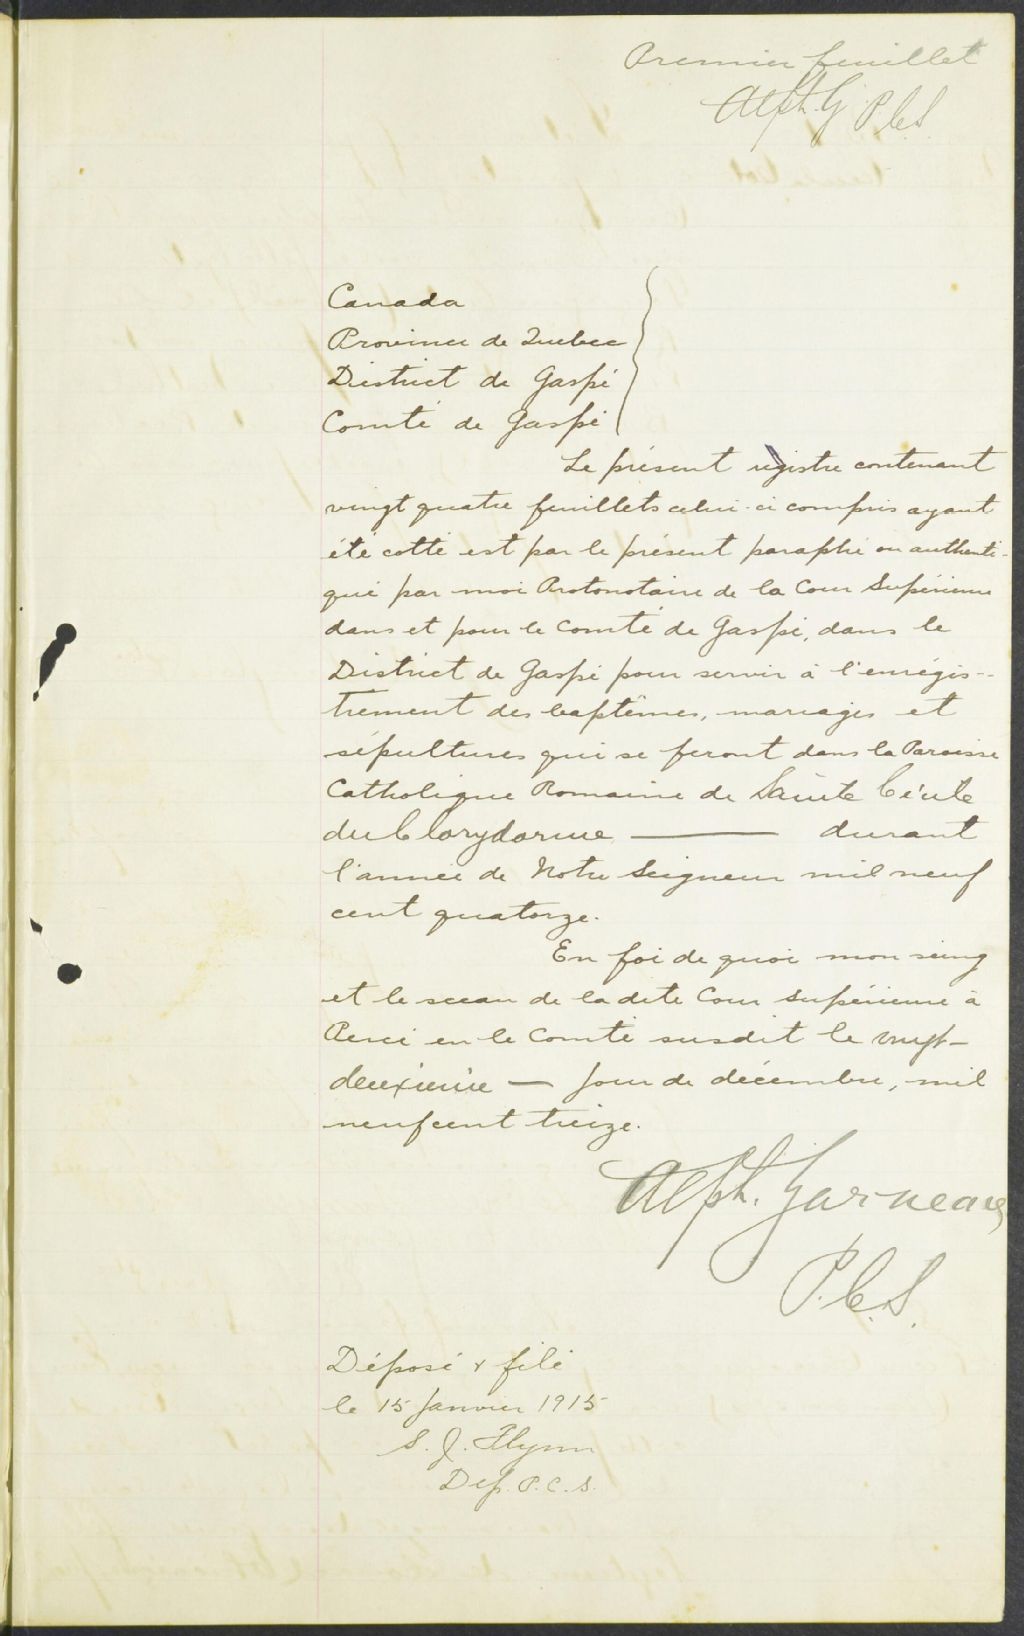 Premier feuillet
Alph. G. P.C.S.
Canada
Province de Quebec
District de Gaspé
Comté de Gaspé
Le présent régistre contenant
vingt quatre feuillets celui-ci compris ayant
été cotté est par le présent paraphé ou authenti-
qué par moi Protonotaire de la Cour Supérieure
dans et pour le Comté de Gaspé, dans le
District de Gaspé pour servir à l'enrégis-
trement des baptêmes, mariages et
sépultures qui se feront dans la Paroisse
Catholique Romaine de Sainte Cécile
du Clorydorme ——— durant
l'année de Notre Seigneur mil neuf
cent quatorze.
En foi de quoi mon seing
et le sceau de la dite Cour Supérieure à
Percé en le Comté susdit le vingt-
deuxième — jour de décembre, mil
neuf cent treize.
Alph. Garneau
P.C.S.
Déposé & filé
le 15 Janvier 1915
S. J. Flynn
Dep. P.C.S.